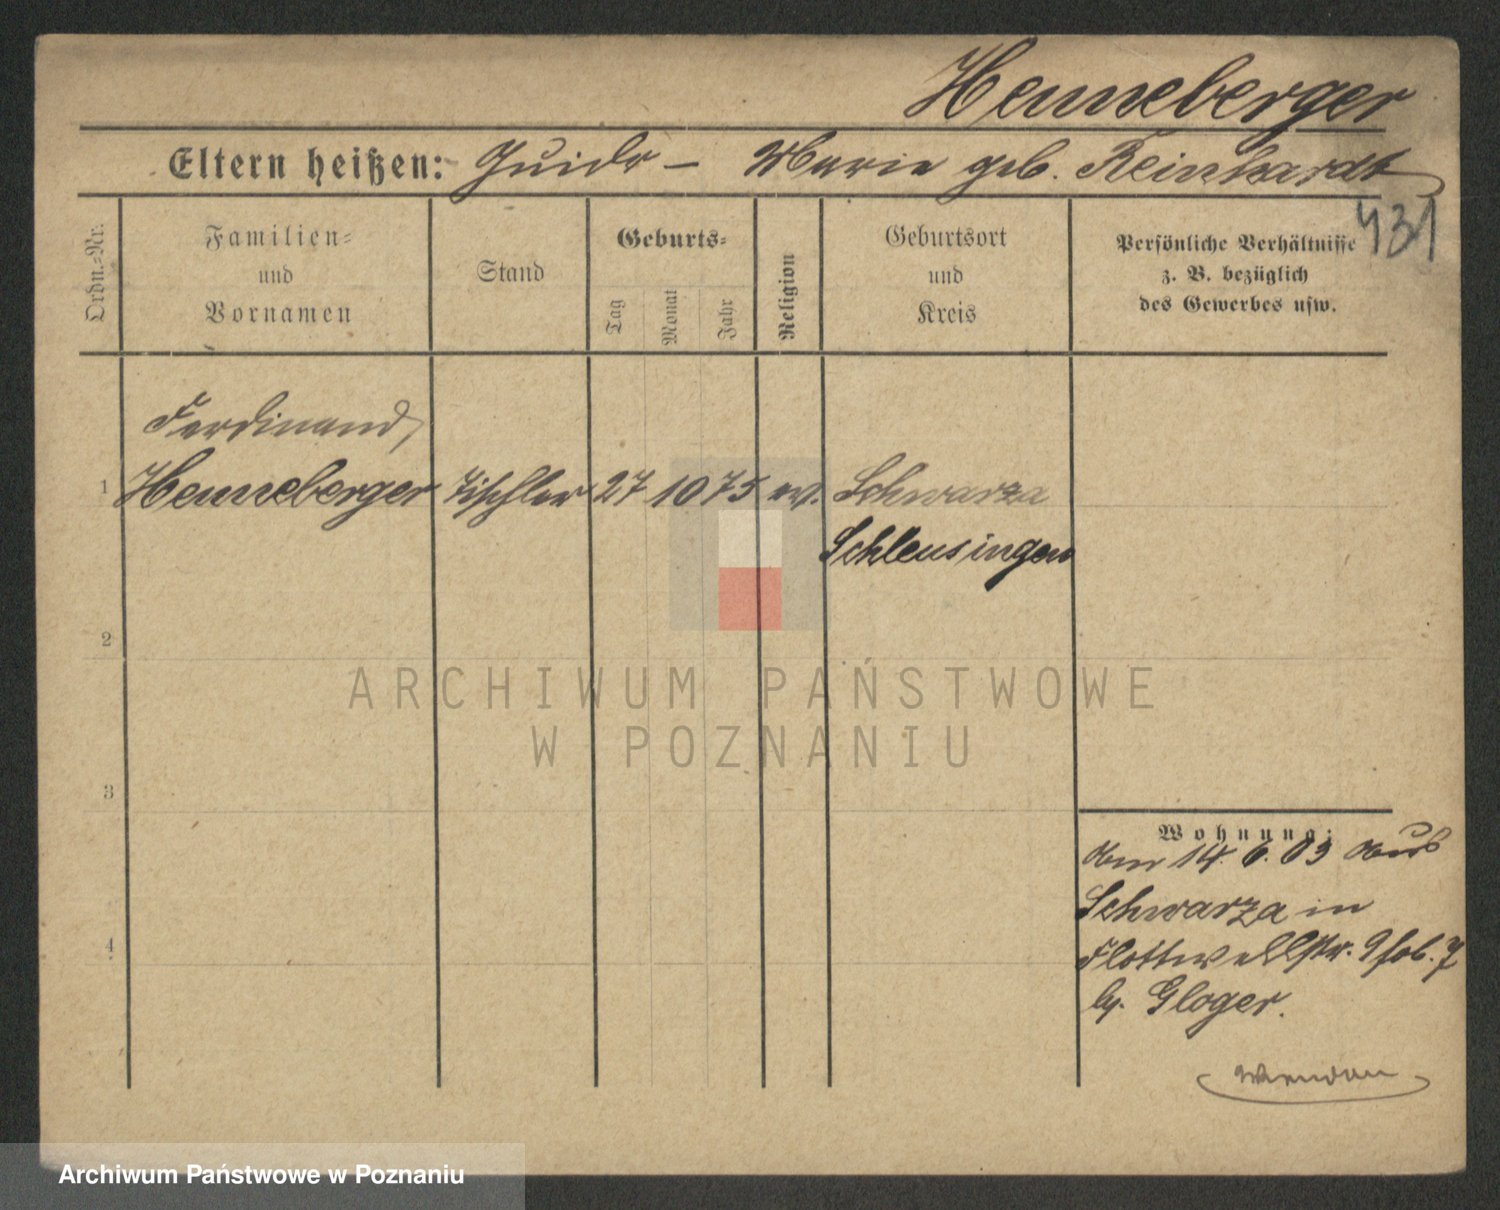 Henneberger
Eltern heißen: Guido – Marie geb. Reinhardt
431
Ordn.-Nr.
Familien-
und
Vornamen
Stand
Geburts-
Tag
Monat
Jahr
Religion
Geburtsort
und
Kreis
Persönliche Verhältnisse
z. B. bezüglich
des Gewerbes usw.
Ferdinand,
1 Henneberger Tischler 27 10 75 ev. Schwarza
Schleusingen
2
3
4
Wohnung:
Am 14. 6. 03 aus
Schwarza in
Flottwellstr. 9
by. Gloger.
ARCHIWUM PAŃSTWOWE
W POZNANIU
Archiwum Państwowe w Poznaniu